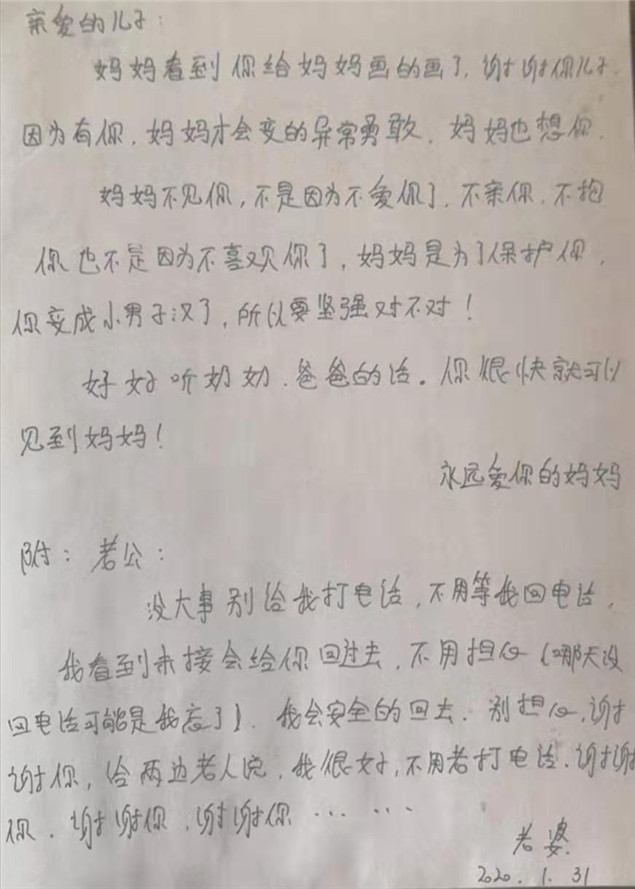 亲爱的儿子:
妈妈看到你给妈妈画的画了,谢谢你儿子.
因为有你,妈妈才会变的异常勇敢,妈妈也想你.
妈妈不见你,不是因为不爱你了.不亲你.不抱
你也不是因为不喜欢你了,妈妈是为了保护你.
你变成小男子汉了,所以要坚强对不对!
好好听奶奶.爸爸的话。你很快就可以
见到妈妈!
永远爱你的妈妈
附:老公:
没大事别给我打电话,不用等我回电话.
我看到未接会给你回过去,不用担心(哪天没
回电话可能是我忘了).我会安全的回去.别担心,谢
谢你,给两边老人说,我很好,不用老打电话.谢谢
你.谢谢你,谢谢你……
老婆
2020.1.31